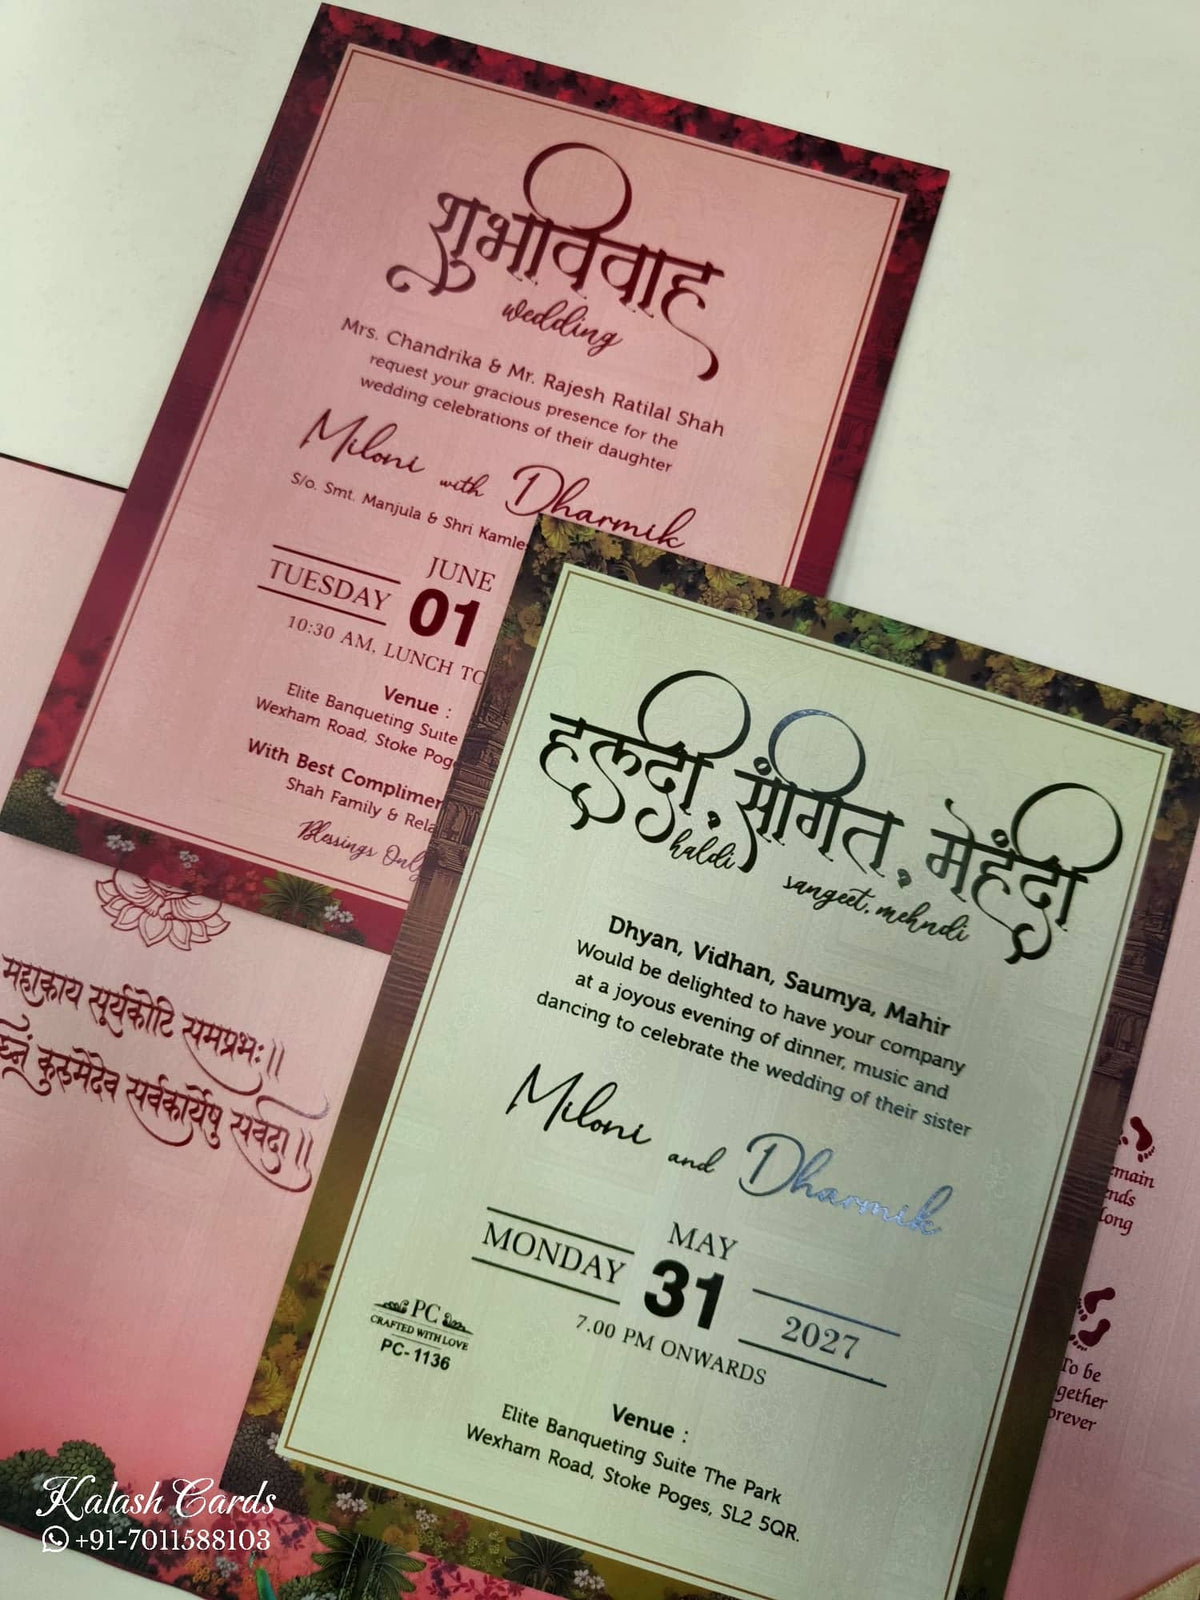 शुभविवाह
wedding
Mrs. Chandrika & Mr. Rajesh Ratilal Shah
request your gracious presence for the
wedding celebrations of their daughter
Miloni with Dharmik
S/o. Smt. Manjula & Shri Kamle
JUNE
TUESDAY 01
10:30 AM, LUNCH TO
Venue :
Elite Banqueting Suite
Wexham Road, Stoke Pog
With Best Complimen
Shah Family & Rela
Blessings Only
महाकाय सुर्यकोटि समप्रभः॥
कुरुमेदेव सर्वकार्येषु सर्वदा॥
हल्दी, संगित, मेहंदी
haldi
sangeet, mehndi
Dhyan, Vidhan, Saumya, Mahir
Would be delighted to have your company
at a joyous evening of dinner, music and
dancing to celebrate the wedding of their sister
Miloni and Dharmik
MAY
MONDAY 31 2027
7.00 PM ONWARDS
PC
CRAFTED WITH LOVE
PC-1136
Venue :
Elite Banqueting Suite The Park
Wexham Road, Stoke Poges, SL2 5QR.
emain
ends
Long
To be
gether
orever
Kalash Cards
+91-7011588103